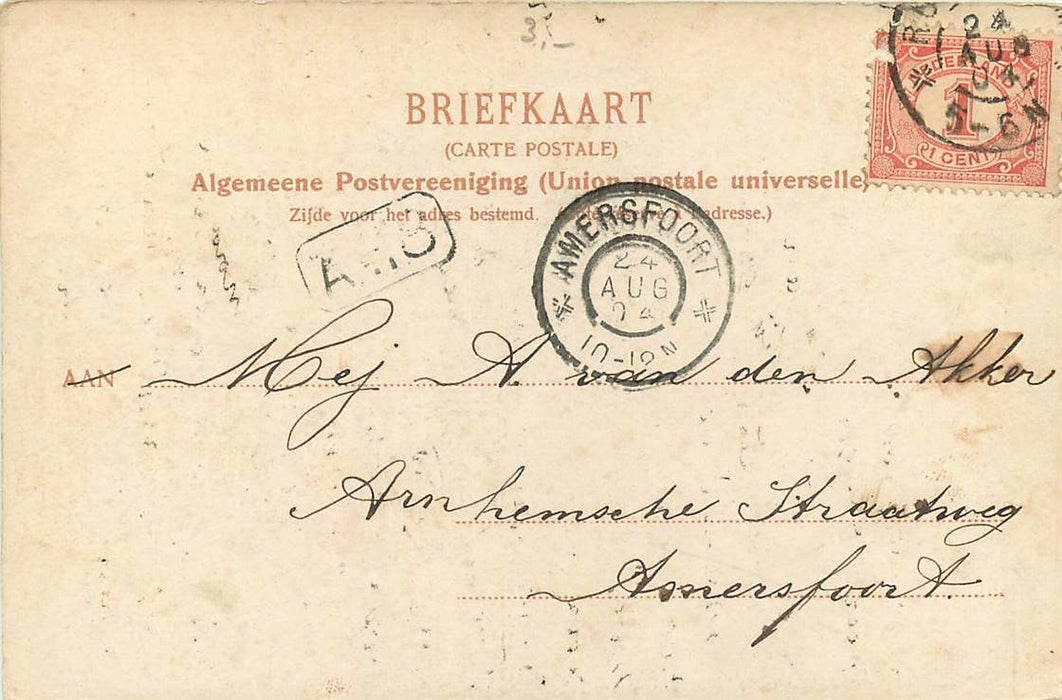 3,-
24
AUG
04
5-6N
NEDERLAND
1
1 CENT
BRIEFKAART
(CARTE POSTALE)
Algemeene Postvereeniging (Union postale universelle)
Zijde voor het adres bestemd. l'adresse.)
AMERSFOORT
24
AUG
04
10-12N
AAN Mej A. van den Akker
Arnhemsche Straatweg
Amersfoort.